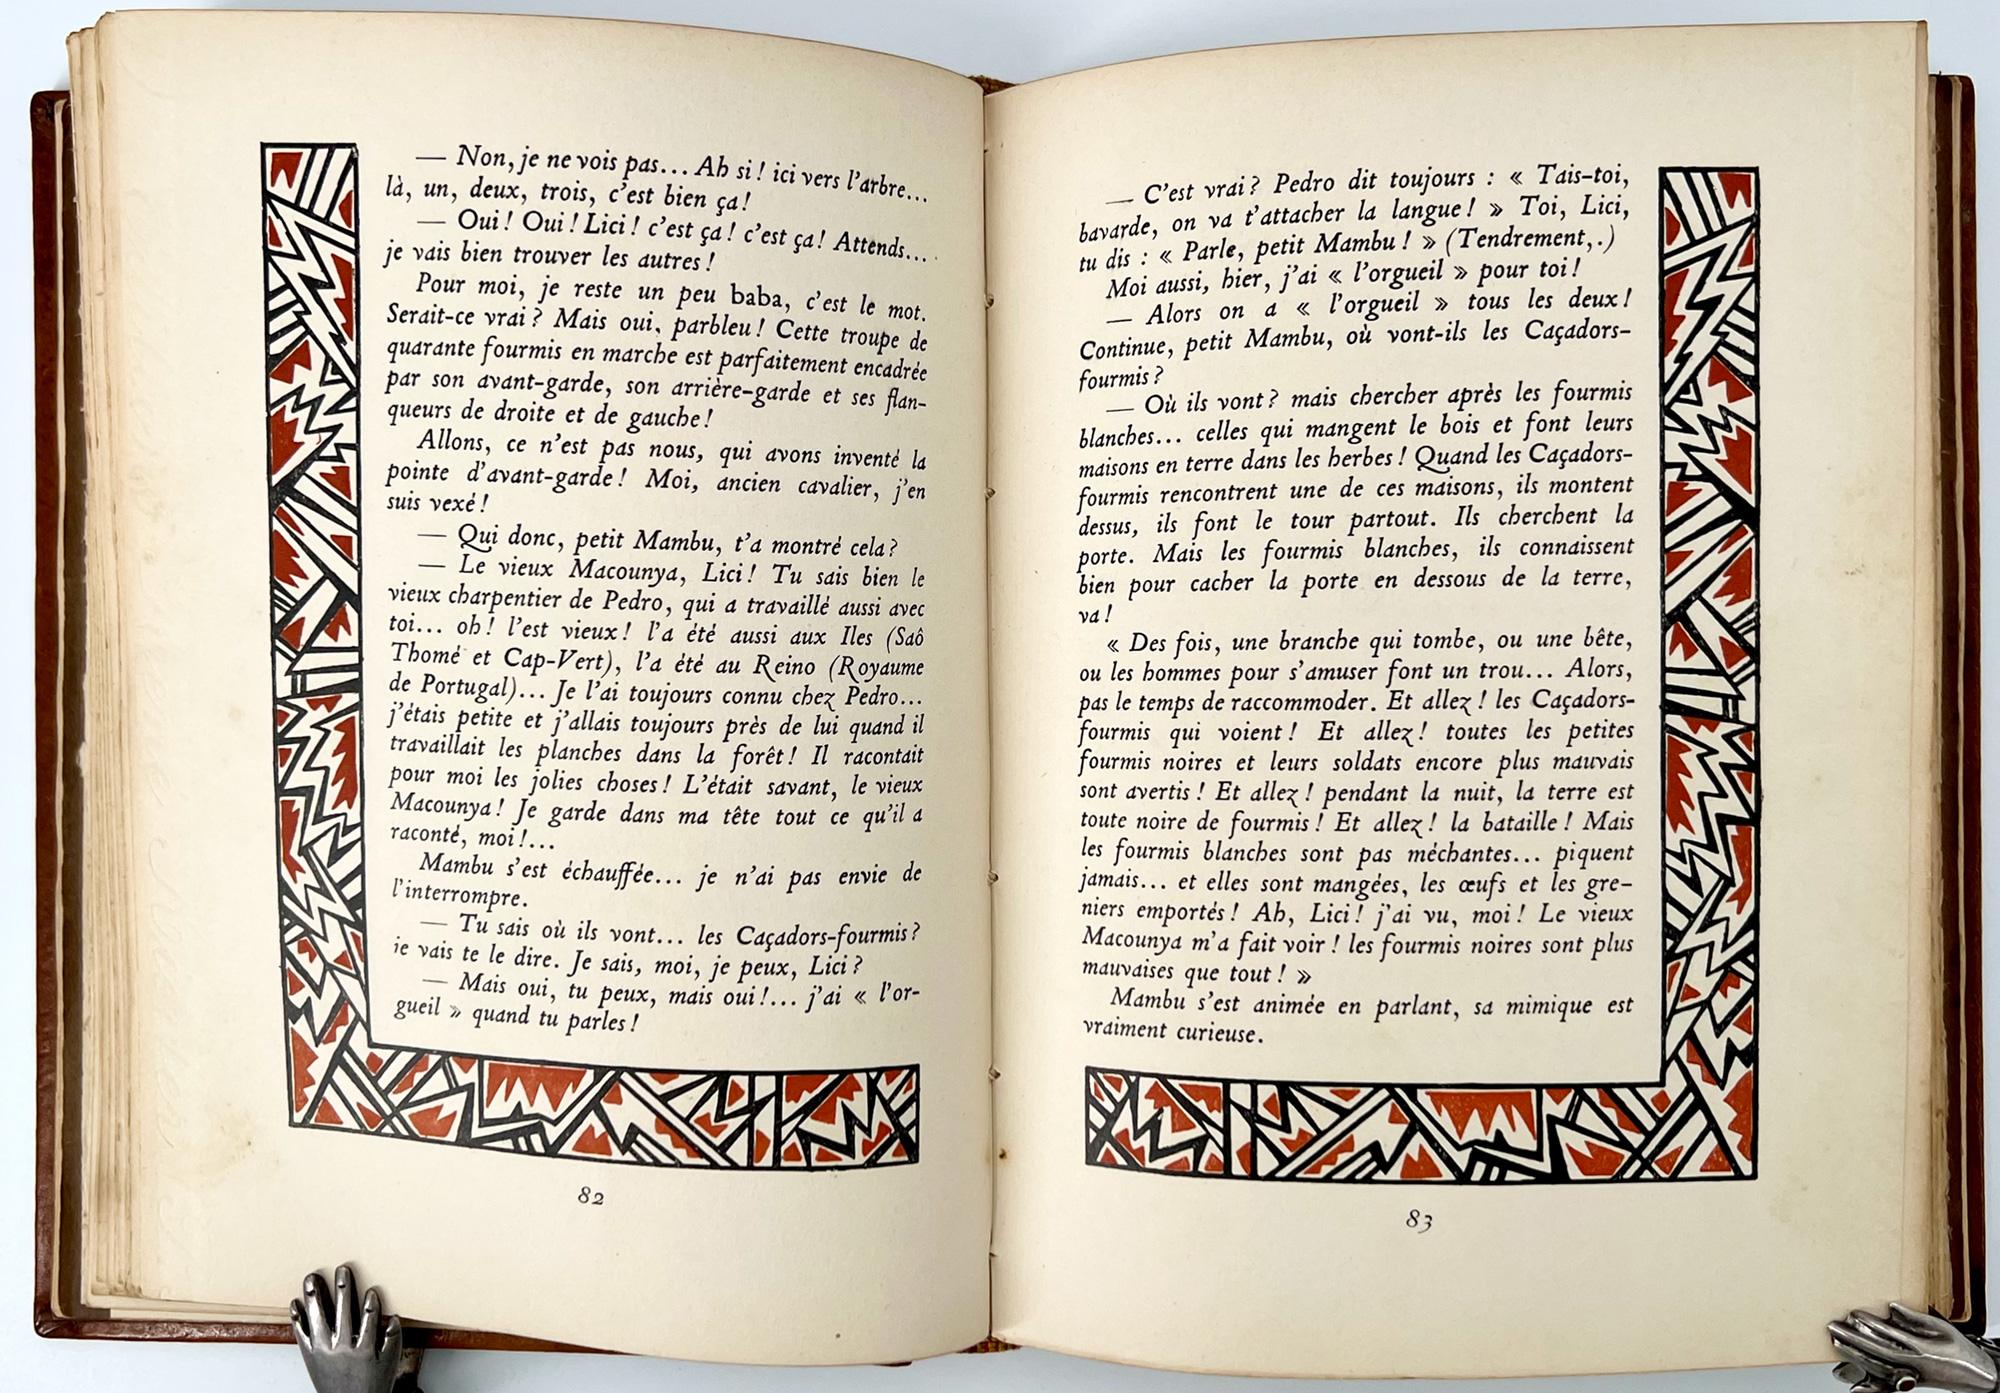 — Non, je ne vois pas... Ah si ! ici vers l'arbre...
là, un, deux, trois, c'est bien ça !
— Oui ! Oui ! Lici ! c'est ça ! c'est ça ! Attends...
je vais bien trouver les autres !
Pour moi, je reste un peu baba, c'est le mot.
Serait-ce vrai ? Mais oui, parbleu ! Cette troupe de
quarante fourmis en marche est parfaitement encadrée
par son avant-garde, son arrière-garde et ses flan-
queurs de droite et de gauche !
Allons, ce n'est pas nous, qui avons inventé la
pointe d'avant-garde ! Moi, ancien cavalier, j'en
suis vexé !
— Qui donc, petit Mambu, t'a montré cela ?
— Le vieux Macounya, Lici ! Tu sais bien le
vieux charpentier de Pedro, qui a travaillé aussi avec
toi... oh ! l'est vieux ! l'a été aussi aux Iles (Saô
Thomé et Cap-Vert), l'a été au Reino (Royaume
de Portugal)... Je l'ai toujours connu chez Pedro...
j'étais petite et j'allais toujours près de lui quand il
travaillait les planches dans la forêt ! Il racontait
pour moi les jolies choses ! L'était savant, le vieux
Macounya ! Je garde dans ma tête tout ce qu'il a
raconté, moi !...
Mambu s'est échauffée... je n'ai pas envie de
l'interrompre.
— Tu sais où ils vont... les Caçadors-fourmis ?
je vais te le dire. Je sais, moi, je peux, Lici ?
— Mais oui, tu peux, mais oui !... j'ai « l'or-
gueil » quand tu parles !
82
— C'est vrai ? Pedro dit toujours : « Tais-toi,
bavarde, on va t'attacher la langue ! » Toi, Lici,
tu dis : « Parle, petit Mambu ! » (Tendrement,.)
Moi aussi, hier, j'ai « l'orgueil » pour toi !
— Alors on a « l'orgueil » tous les deux !
Continue, petit Mambu, où vont-ils les Caçadors-
fourmis ?
— Où ils vont ? mais chercher après les fourmis
blanches... celles qui mangent le bois et font leurs
maisons en terre dans les herbes ! Quand les Caçadors-
fourmis rencontrent une de ces maisons, ils montent
dessus, ils font le tour partout. Ils cherchent la
porte. Mais les fourmis blanches, ils connaissent
bien pour cacher la porte en dessous de la terre,
va !
« Des fois, une branche qui tombe, ou une bête,
ou les hommes pour s'amuser font un trou... Alors,
pas le temps de raccommoder. Et allez ! les Caçadors-
fourmis qui voient ! Et allez ! toutes les petites
fourmis noires et leurs soldats encore plus mauvais
sont avertis ! Et allez ! pendant la nuit, la terre est
toute noire de fourmis ! Et allez ! la bataille ! Mais
les fourmis blanches sont pas méchantes... piquent
jamais... et elles sont mangées, les œufs et les gre-
niers emportés ! Ah, Lici ! j'ai vu, moi ! Le vieux
Macounya m'a fait voir ! les fourmis noires sont plus
mauvaises que tout ! »
Mambu s'est animée en parlant, sa mimique est
vraiment curieuse.
83